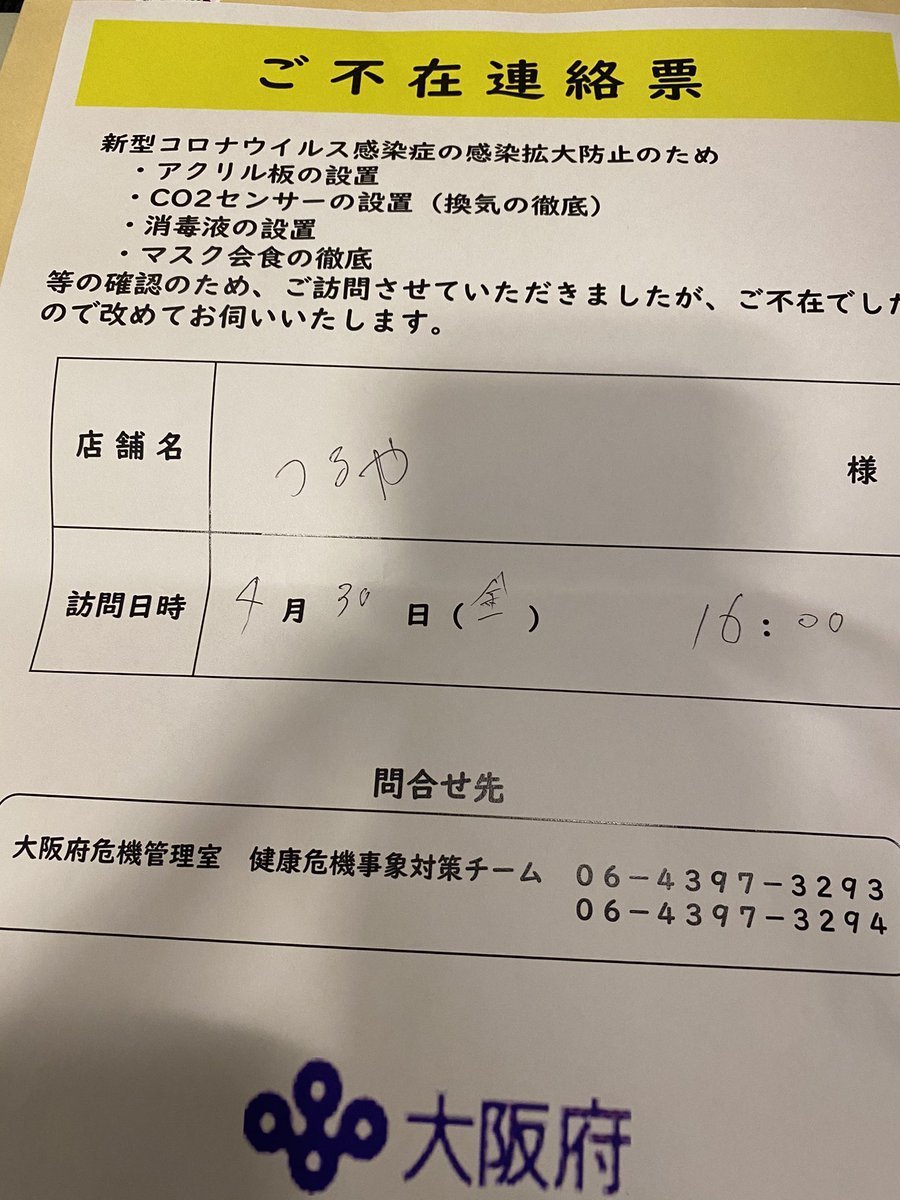 ご不在連絡票
新型コロナウイルス感染症の感染拡大防止のため
・アクリル板の設置
・CO2センサーの設置（換気の徹底）
・消毒液の設置
・マスク会食の徹底
等の確認のため、ご訪問させていただきましたが、ご不在でした
ので改めてお伺いいたします。
店舗名 つるや 様
訪問日時 4月30日(金) 16:00
問合せ先
大阪府危機管理室 健康危機事象対策チーム 06－4397－3293
06－4397－3294
大阪府